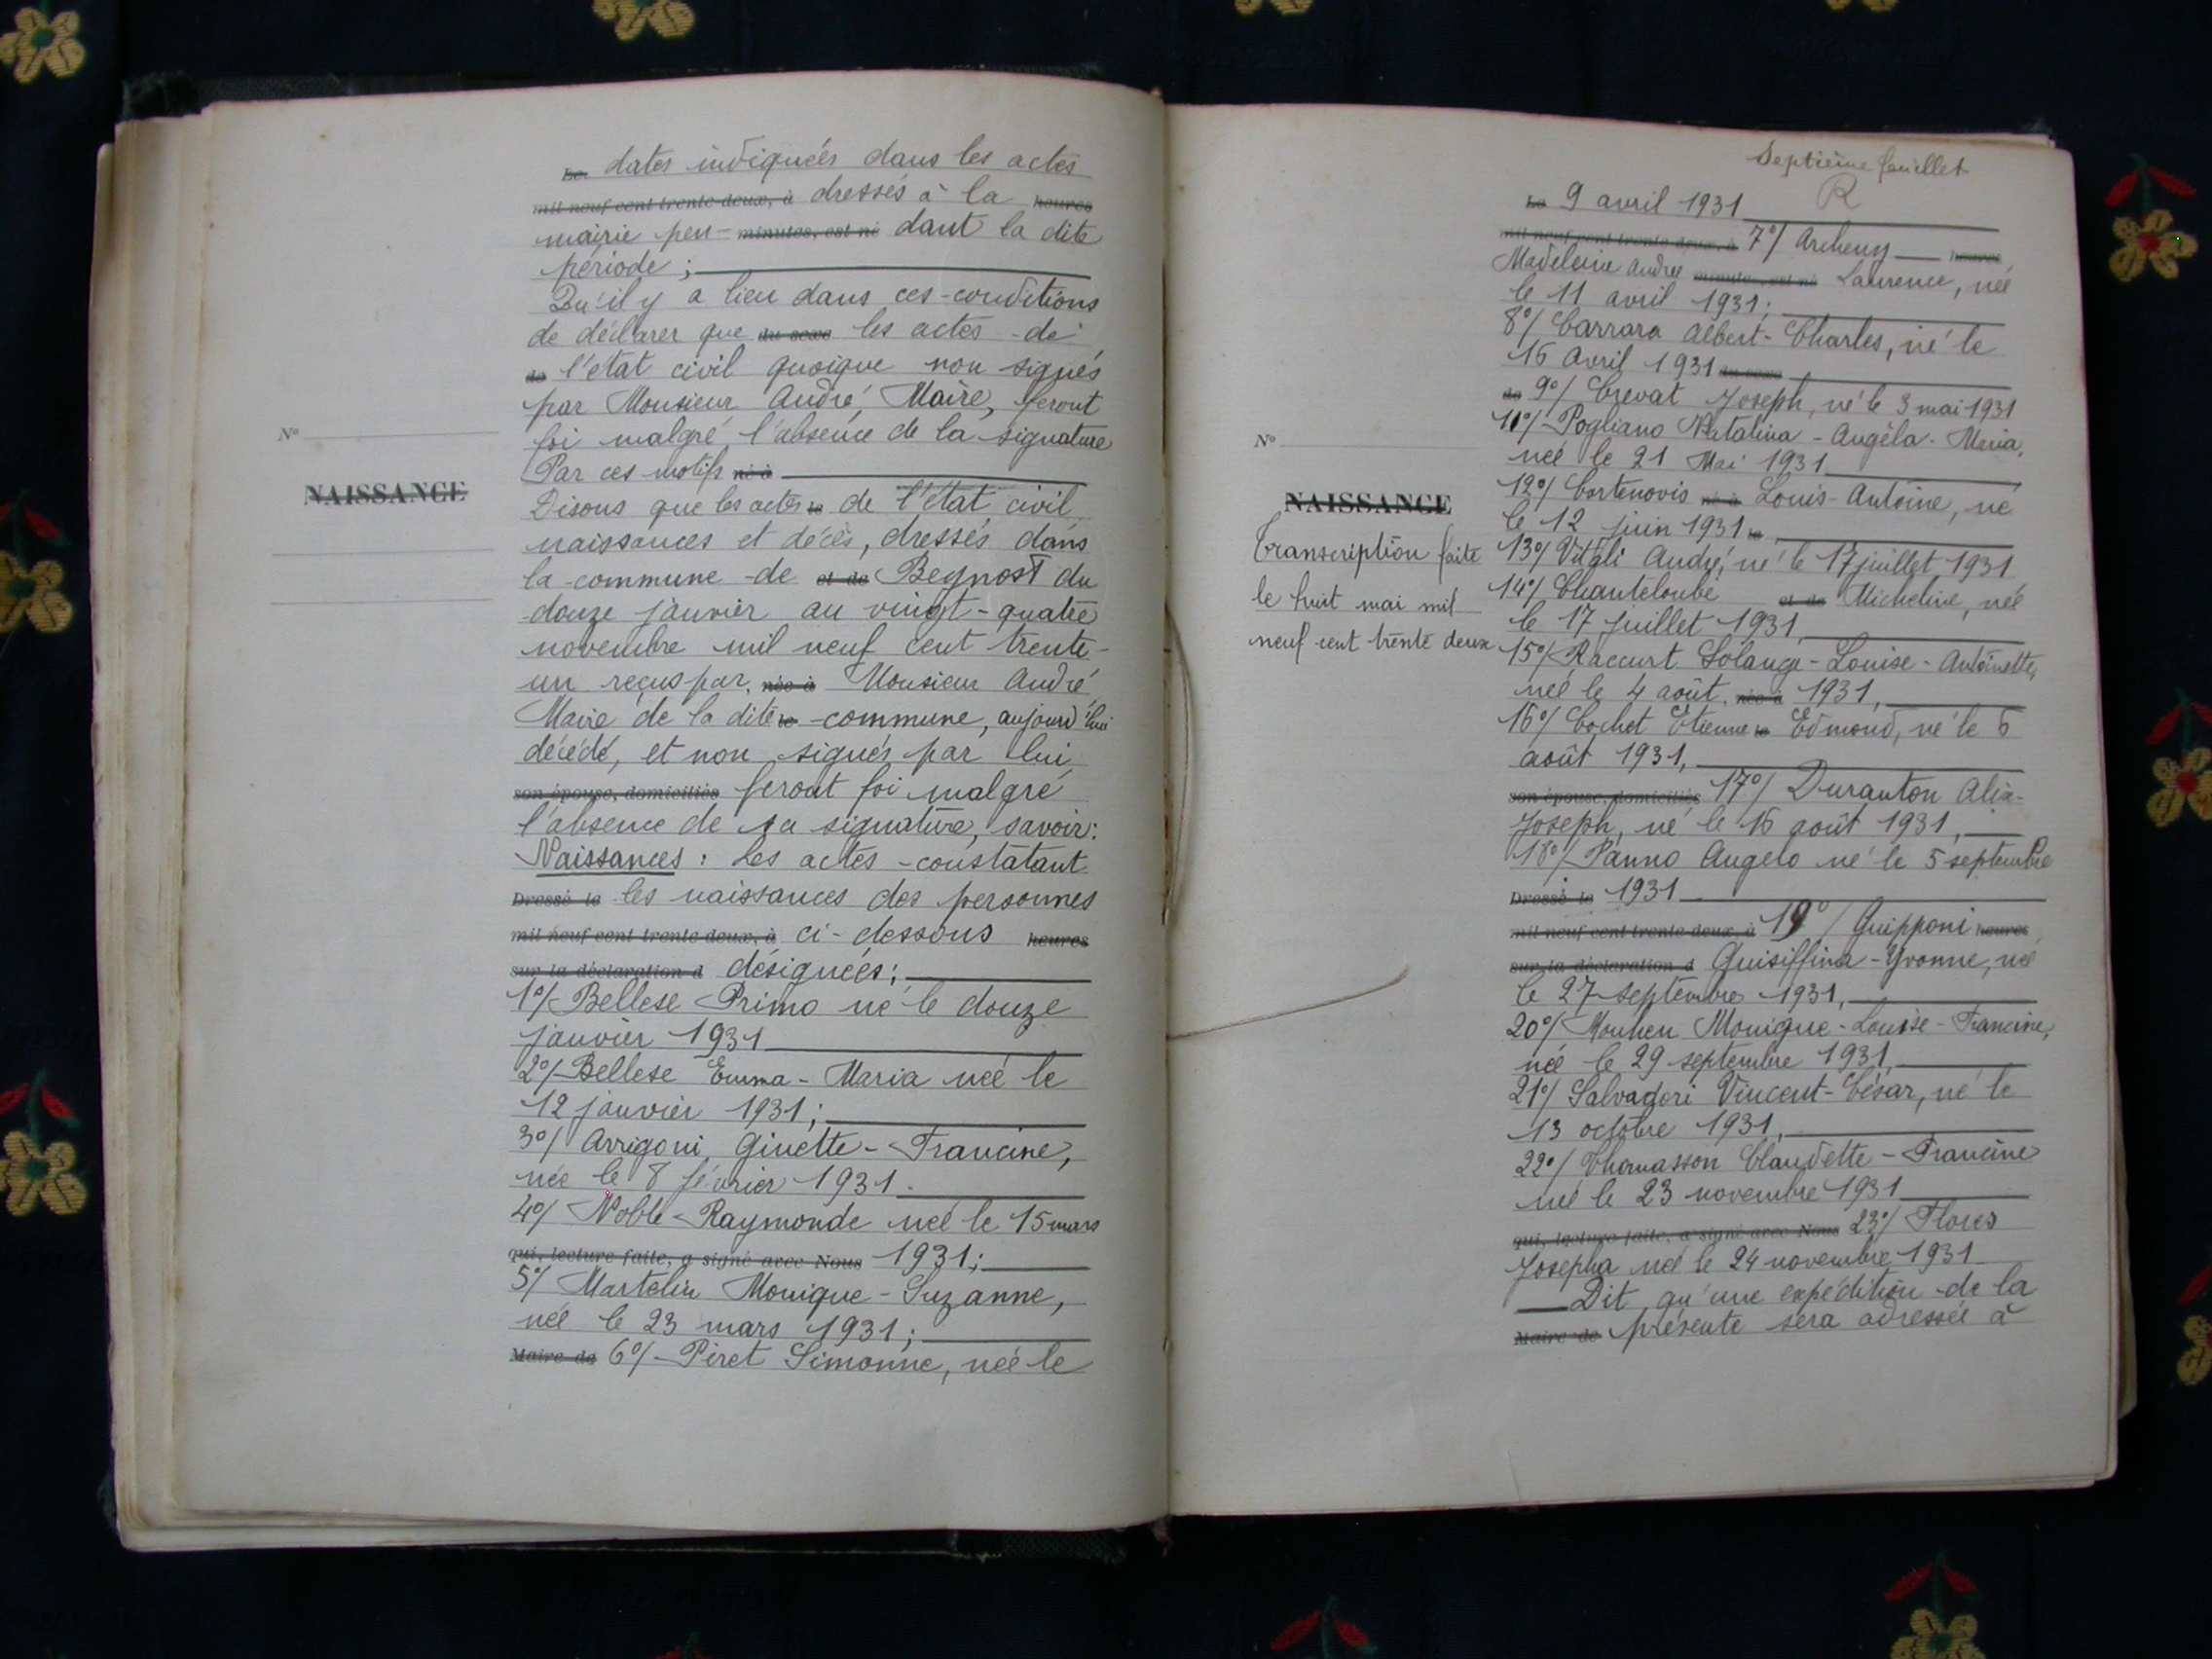 Le dates indiquées dans les actes
mil neuf cent trente-deux, à dressés à la heures
mairie pen- minutes, est né dant la dite
période ;
Qu'il y a lieu dans ces conditions
de déclarer que du sexe les actes de
de l'état civil quoique non signés
par Monsieur André, Maire, feront
foi malgré l'absence de la signature
Par ces motifs né à
Disons que les actes le de l'état civil
naissances et décès, dressés dans
la commune de et de Beynost du
douze janvier au vingt-quatre
novembre mil neuf cent trente-
un reçus par née à Monsieur André
Maire de la dite le commune, aujourd'hui
décédé, et non signés par lui
son épouse, domiciliés feront foi malgré
l'absence de sa signature, savoir :
Naissances : Les actes constatant
Dressé le les naissances des personnes
mil neuf cent trente-deux, à ci-dessous heures
sur la déclaration d désignées ;
1°/ Bellese Primo né le douze
janvier 1931
2°/ Bellese Emma-Maria née le
12 janvier 1931 ;
3°/ Arrigoni, Ginette-Francine,
née le 8 février 1931.
4°/ Noble Raymonde née le 15 mars
qui, lecture faite, a signé avec Nous 1931 ;
5°/ Martelin Monique-Suzanne,
née le 23 mars 1931 ;
Maire de 6°/ Piret Simonne, née le
N°
NAISSANCE
Septième feuillet
R
Le 9 avril 1931
mil neuf cent trente-deux, à 7°/ Archeny heures
Madeleine Andrée minutes, est né Laurence, née
le 11 avril 1931 ;
8°/ Carrara Albert-Charles, né le
16 avril 1931 du sexe
de 9°/ Crevat Joseph, né le 3 mai 1931
11°/ Pogliano Natalina-Angéla-Maria,
née le 21 Mai 1931
12°/ Cortenovis né à Louis-Antoine, né
le 12 juin 1931 le,
13°/ Vitali André, né le 17 juillet 1931
14°/ Chanteloube et de Micheline, née
le 17 juillet 1931,
15°/ Raccurt Solange-Louise-Antoinette,
née le 4 août, née à 1931,
16°/ Cochet Etienne le Edmond, né le 6
août 1931,
son épouse, domiciliés 17°/ Duranton Alix-
Joseph, né le 16 août 1931,
18°/ Panno Angelo né le 5 septembre
Dressé le 1931
mil neuf cent trente-deux, à 19°/ Guipponi heures
sur la déclaration d Guisiffina-Yvonne, née
le 27 septembre 1931,
20°/ Monique-Louise-Francine,
née le 29 septembre 1931,
21°/ Salvadori Vincent-César, né le
13 octobre 1931,
22°/ Thomasson Claudette-Francine
née le 23 novembre 1931
qui, lecture faite, a signé avec Nous 23°/ Flores
Josepha née le 24 novembre 1931
Dit, qu'une expédition de la
Maire de présente sera adressée à
N°
NAISSANCE
Transcription faite
le huit mai mil
neuf cent trente deux